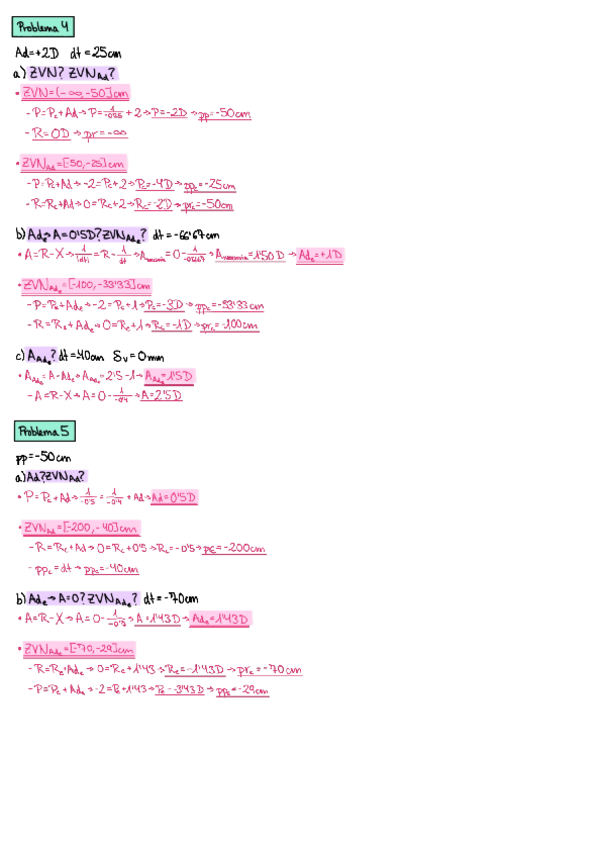 Problema 4
Ad=+2D dt=25cm
a) ZVN? ZVN_Ad?
• ZVN=(-∞,-50]cm
- P=Pc+Ad→P=1/-0'25+2→P=-2D→pp=-50cm
- R=0D→pr=-∞
• ZVN_Ad=[-50,-25]cm
- P=Pc+Ad→-2=Pc+2→Pc=-4D→ppc=-25cm
- R=Rc+Ad→0=Rc+2→Rc=-2D→prc=-50cm
b) Ade→A=0'5D? ZVN_Ade? dt=-66'67cm
• A=R-X→1/|dt|=R-1/dt→A_necesaria=0-1/-0'6667→A_necesaria=1'50D→Ade=+1D
• ZVN_Ade=[-100,-33'33]cm
- P=Pc+Ade→-2=Pc+1→Pc=-3D→ppc=-33'33cm
- R=Re+Ade→0=Rc+1→Rc=-1D→prc=-100cm
c) A_Ade? dt=40cm δv=0mm
• A_Ade=A-Ade→A_Ade=2'5-1→A_Ade=1'5D
- A=R-X→A=0-1/-0'4→A=2'5D
Problema 5
pp=-50cm
a) Ad? ZVN_Ad?
• P=Pc+Ad→1/-0'5=1/-0'4+Ad→Ad=0'5D
• ZVN_Ad=[-200,-40]cm
- R=Rc+Ad→0=Rc+0'5→Rc=-0'5→prc=-200cm
- ppc=dt→ppc=-40cm
b) Ade→A=0? ZVN_Ade? dt=-70cm
• A=R-X→A=0-1/-0'7→A=1'43D→Ade=1'43D
• ZVN_Ade=[-70,-29]cm
- R=Re+Ade→0=Rc+1'43→Rc=-1'43D→prc=-70cm
- P=Pc+Ade→-2=Pc+1'43→Pc=-3'43D→ppc=-29cm